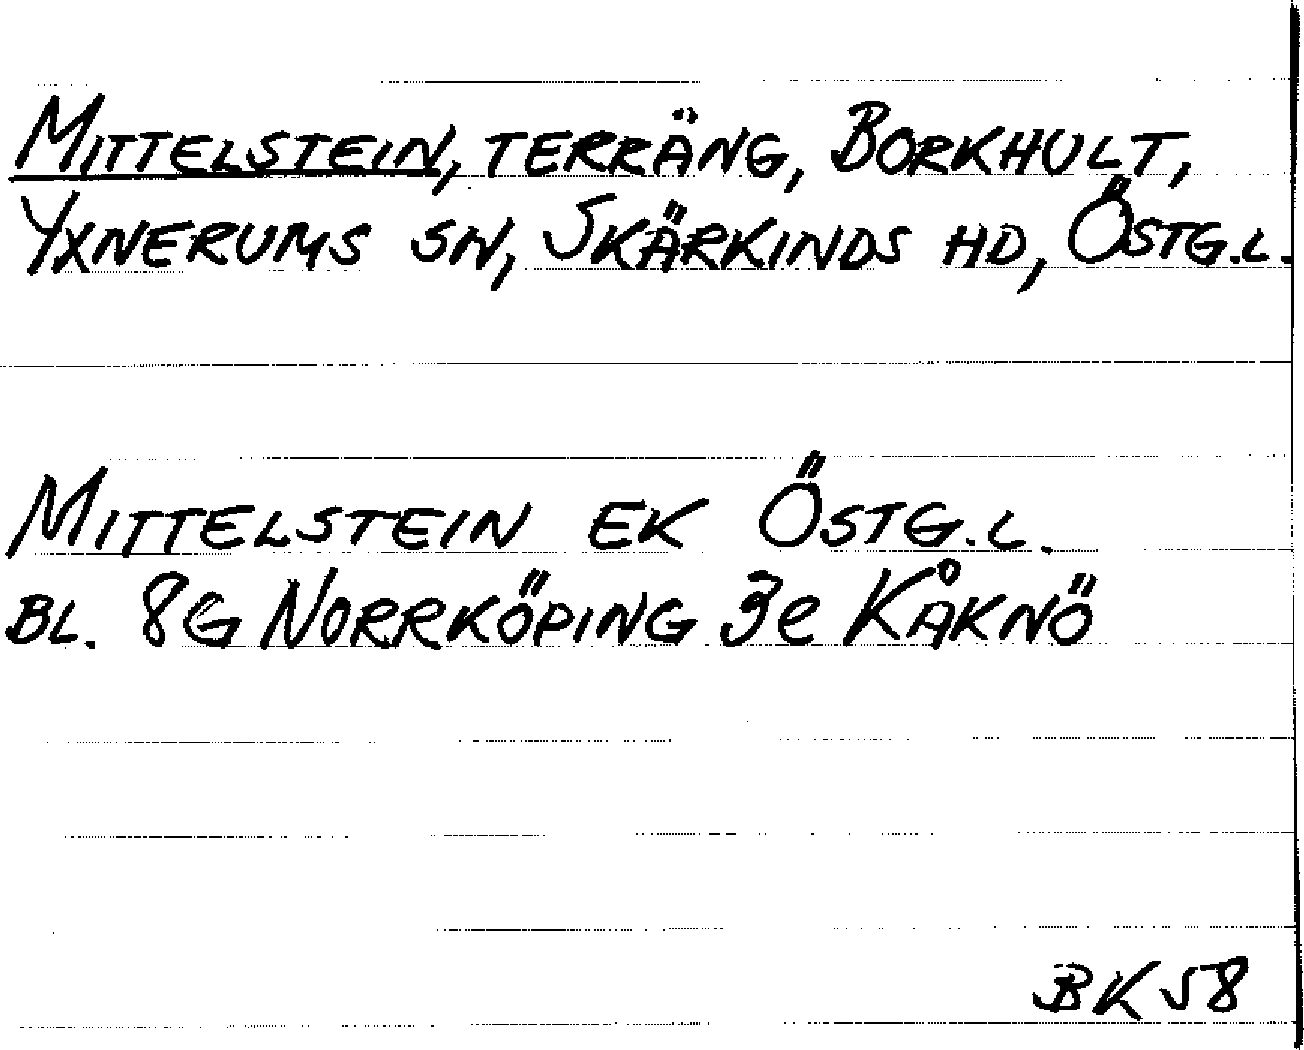 MITTELSTEIN, TERRÄNG, BORKHULT,
YXNERUMS SN, SKÄRKINDS HD, ÖSTG.L.
MITTELSTEIN EK ÖSTG.L.
BL. 8G NORRKÖPING 3e KÅKNÖ
BK 58